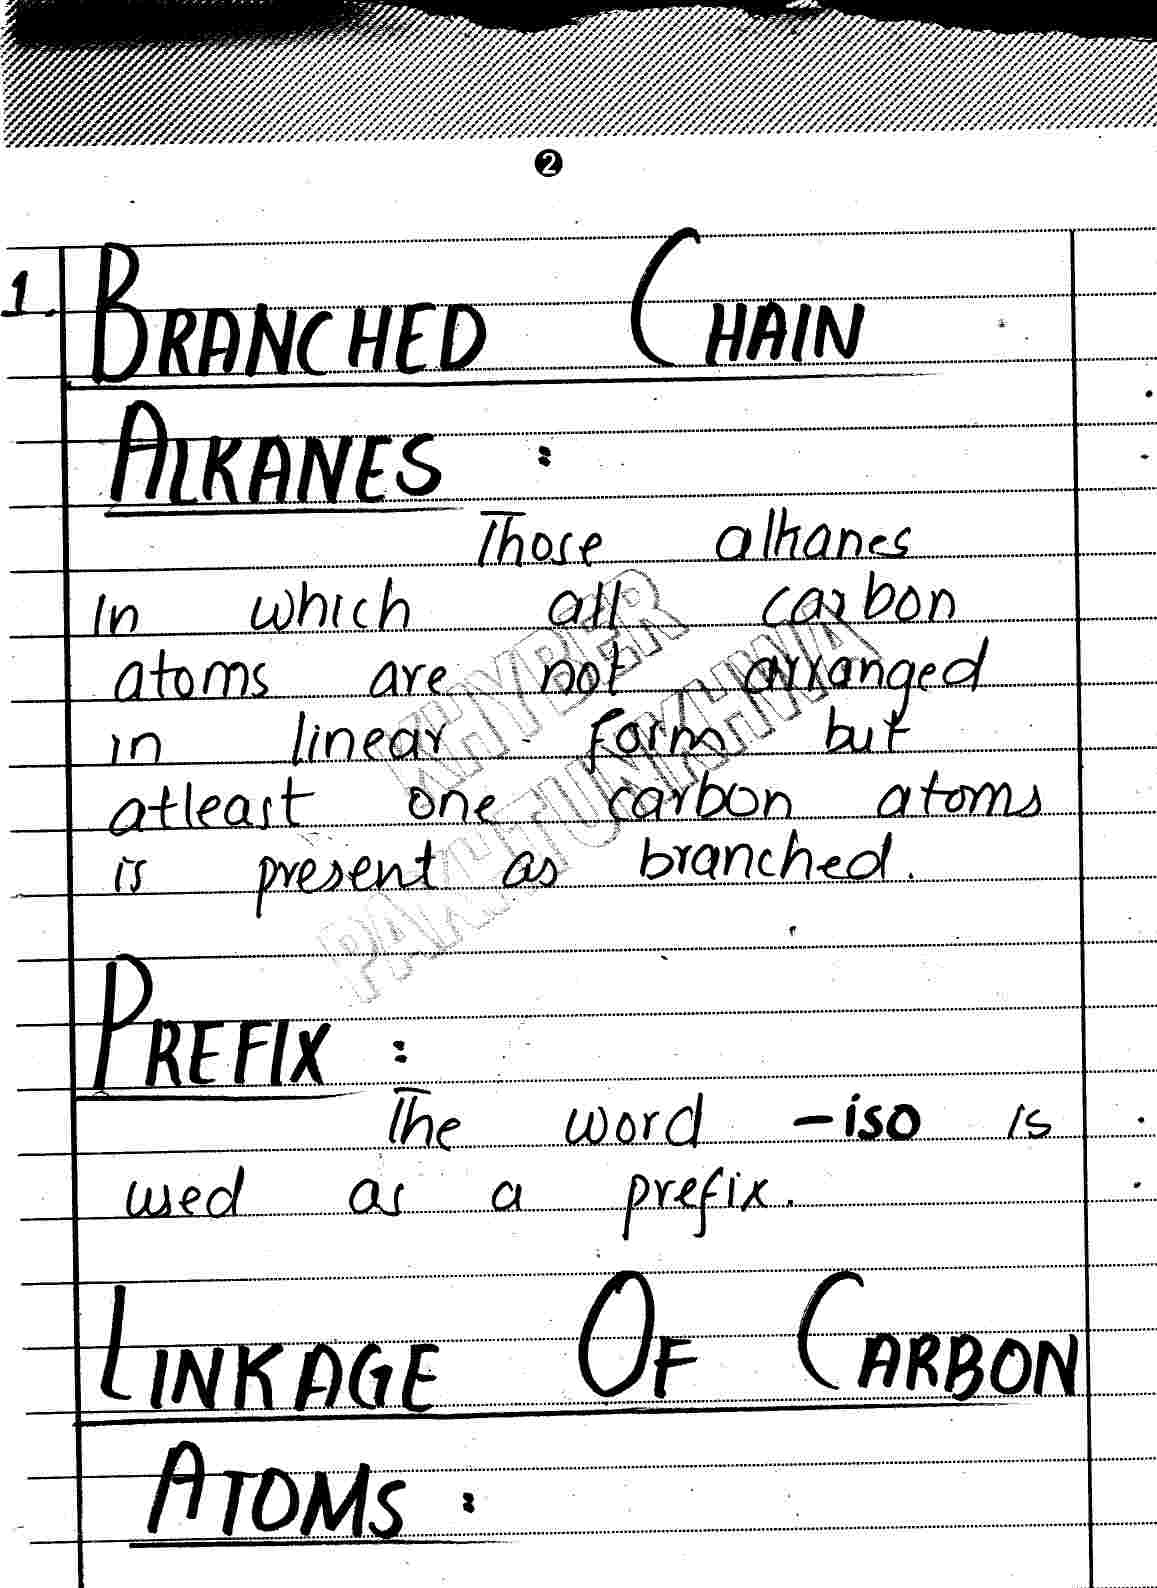 2
1. BRANCHED CHAIN
ALKANES :
Those alkanes
in which all carbon
atoms are not arranged
in linear form but
atleast one carbon atoms
is present as branched.
KHYBER
PAKHTUNKHWA
PREFIX :
The word -iso is
used as a prefix.
LINKAGE OF CARBON
ATOMS :